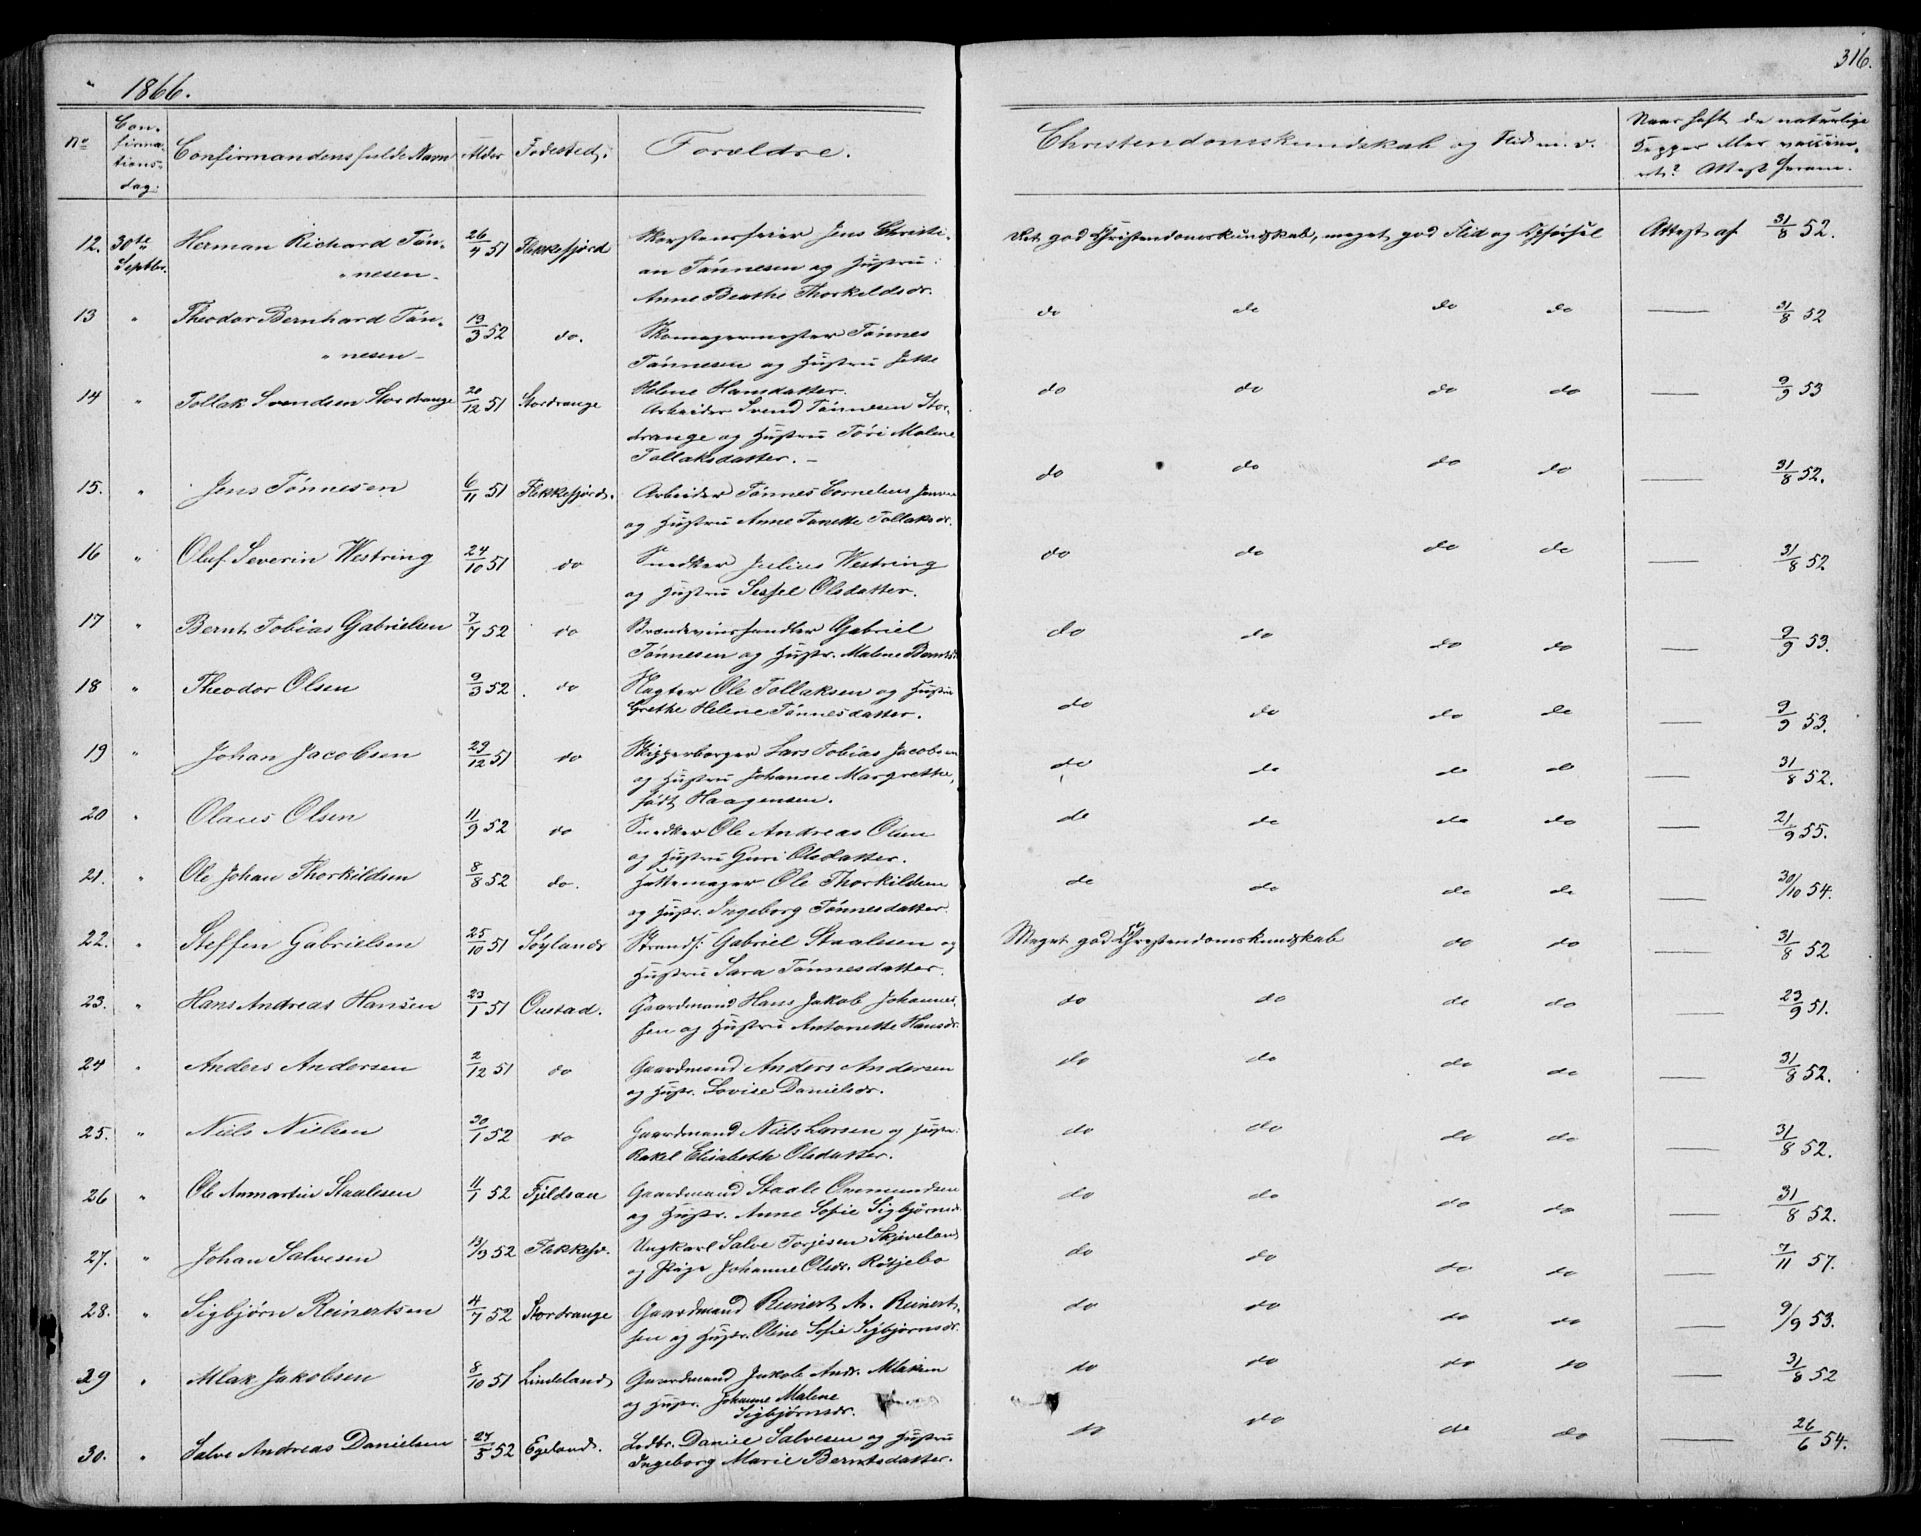 1866.
316.
No
Con-
firma-
tions-
dag:
Confirmandens fulde Navn
Alder
Fødested.
Forældre.
Christendomskundskab og Flid m. v.
Naar haft de naturlige
Kopper eller vaccine-
ret? Attest herom.
12. 30te Septbr. Herman Richard Tøn-
nesen
26/4 51 Flekkefjord
Skorstensfeier Jens Christi-
an Tønnesen og Hustru
Anne Beathe Thorkildsdr.
Ret god Christendomskundskab, meget god Flid og Opførsel
Attest af 31/8 52.
13 " Theodor Bernhard Tøn-
nesen
13/3 52 do.
Skomagermester Tønnes
Tønnesen og Hustru Jette
Helene Hansdatter.
do do do do — 31/8 52
14 " Tollak Svendsen Stordrange 20/12 51 Stordrange
Arbeider Svend Tønnesen Stor-
drange og Hustru Tøri Malene
Tollaksdatter.
do do do do — 9/9 53
15. " Jens Tønnesen 6/11 51 Flekkefjord.
Arbeider Tønnes Cornelius Jensen
og Hustru Anne Tonette Tollaksdr.
do do do do — 31/8 52.
16 " Oluf Severin Westring 24/10 51 do
Snedker Julius Westring
og Hustru Sissel Olsdatter.
do do do do — 31/8 52
17 " Bernt Tobias Gabrielsen 7/7 52 do
Brændevinshandler Gabriel
Tønnesen og Hustr. Malene Berntsd.
do do do do — 9/9 53.
18 " Theodor Olsen 9/3 52. do
Slagter Ole Tollaksen og Hustru
Grethe Helene Tønnesdatter.
do do do do — 9/9 53.
19 " Johan Jacobsen 29/12 51 do
Skipperborger Lars Tobias Jacobsen
og Hustru Johanne Margrethe,
født Haagensen.
do do do do — 31/8 52.
20 " Olaus Olsen 11/9 52 do
Snedker Ole Andreas Olsen
og Hustru Guri Olsdatter.
do do do do — 21/9 55.
21. " Ole Johan Thorkildsen 8/8 52 do.
Hattemager Ole Thorkildsen
og Hustr. Ingeborg Tønnesdatter.
do do do do — 30/10 54.
22. " Steffen Gabrielsen 25/10 51 Søyland
Strands: Gabriel Staalesen og
Hustru Sara Tønnesdatter.
Meget god Christendomskundskab do do — 31/8 52
23. " Hans Andreas Hansen 23/1 51 Oustad.
Gaardmand Hans Jakob Johannes-
sen og Hustru Antonette Hansdr.
do do do do — 23/9 51.
24 " Anders Andersen 2/12 51 do
Gaardmand Anders Andersen
og Hustr. Lovise Danielsdr.
do do do do — 31/8 52.
25. " Niels Nielsen 30/1 52 do
Gaardmand Niels Larsen og Hustr:
Rakel Elisabeth Olsdatter.
do do do do — 31/8 52.
26 " Ole Anmartin Staalesen 11/1 52 Fjeldsaa
Gaardmand Staale Ommundsen
og Hustr. Anne Sofie Sigbjørnsd.
do do do do — 31/8 52.
27. " Johan Salvesen 13/9 52 Flekkefd.
Ungkarl Salve Torjesen Skjeveland
og Pige Johanne Olsdr. Røtjebo
do do do do — 7/11 57.
28. " Sigbjørn Reinertsen 4/7 52 Stordrange
Gaardmand Reinert A. Reinert-
sen og Hustr. Oline Sofie Sigbjørnsdr.
do do do do — 9/9 53.
29 " Mlak Jakobsen 8/10 51 Lindeland
Gaardmand Jakob Andr. Mlaksen
og Hustr. Johanne Malene
Sigbjørnsdr.
do do do do — 31/8 52
30. " Salve Andreas Danielsen 27/5 52 Egeland.
Lodtr. Daniel Salvesen og Hustru
Ingeborg Marie Berntsdatter.
do do do do — 26/6 54.